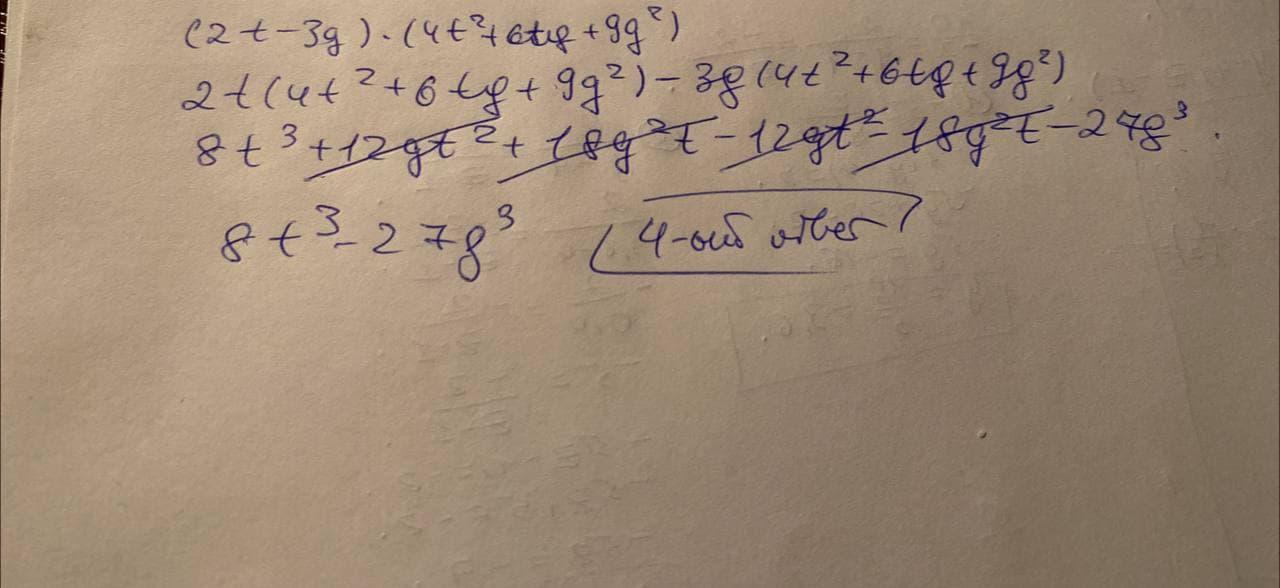 (2t-3g)·(4t²+6tg+9g²)
2t(4t²+6tg+9g²)-3g(4t²+6tg+9g²)
8t³+12gt²+18g²t-12gt²-18g²t-27g³.
8t³-27g³ 4-ый ответ